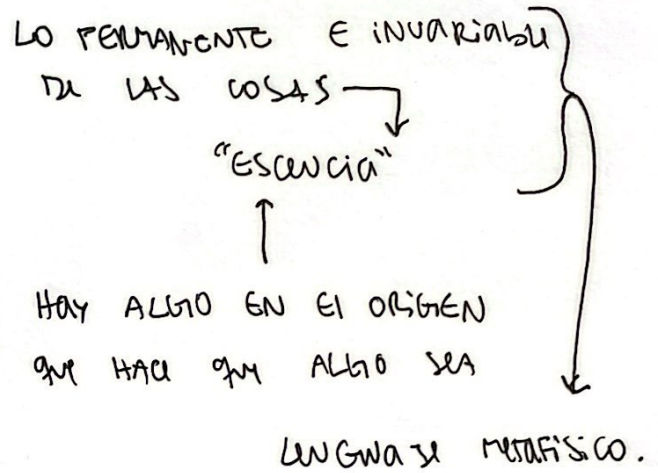 LO PERMANENTE E iNVARiABLE
DE LAS COSAS
"ESCENCiA"
HAY ALGO EN El ORiGEN
QUE HACE QUE ALGO SEA
LENGUAJE METAFÍSiCO.